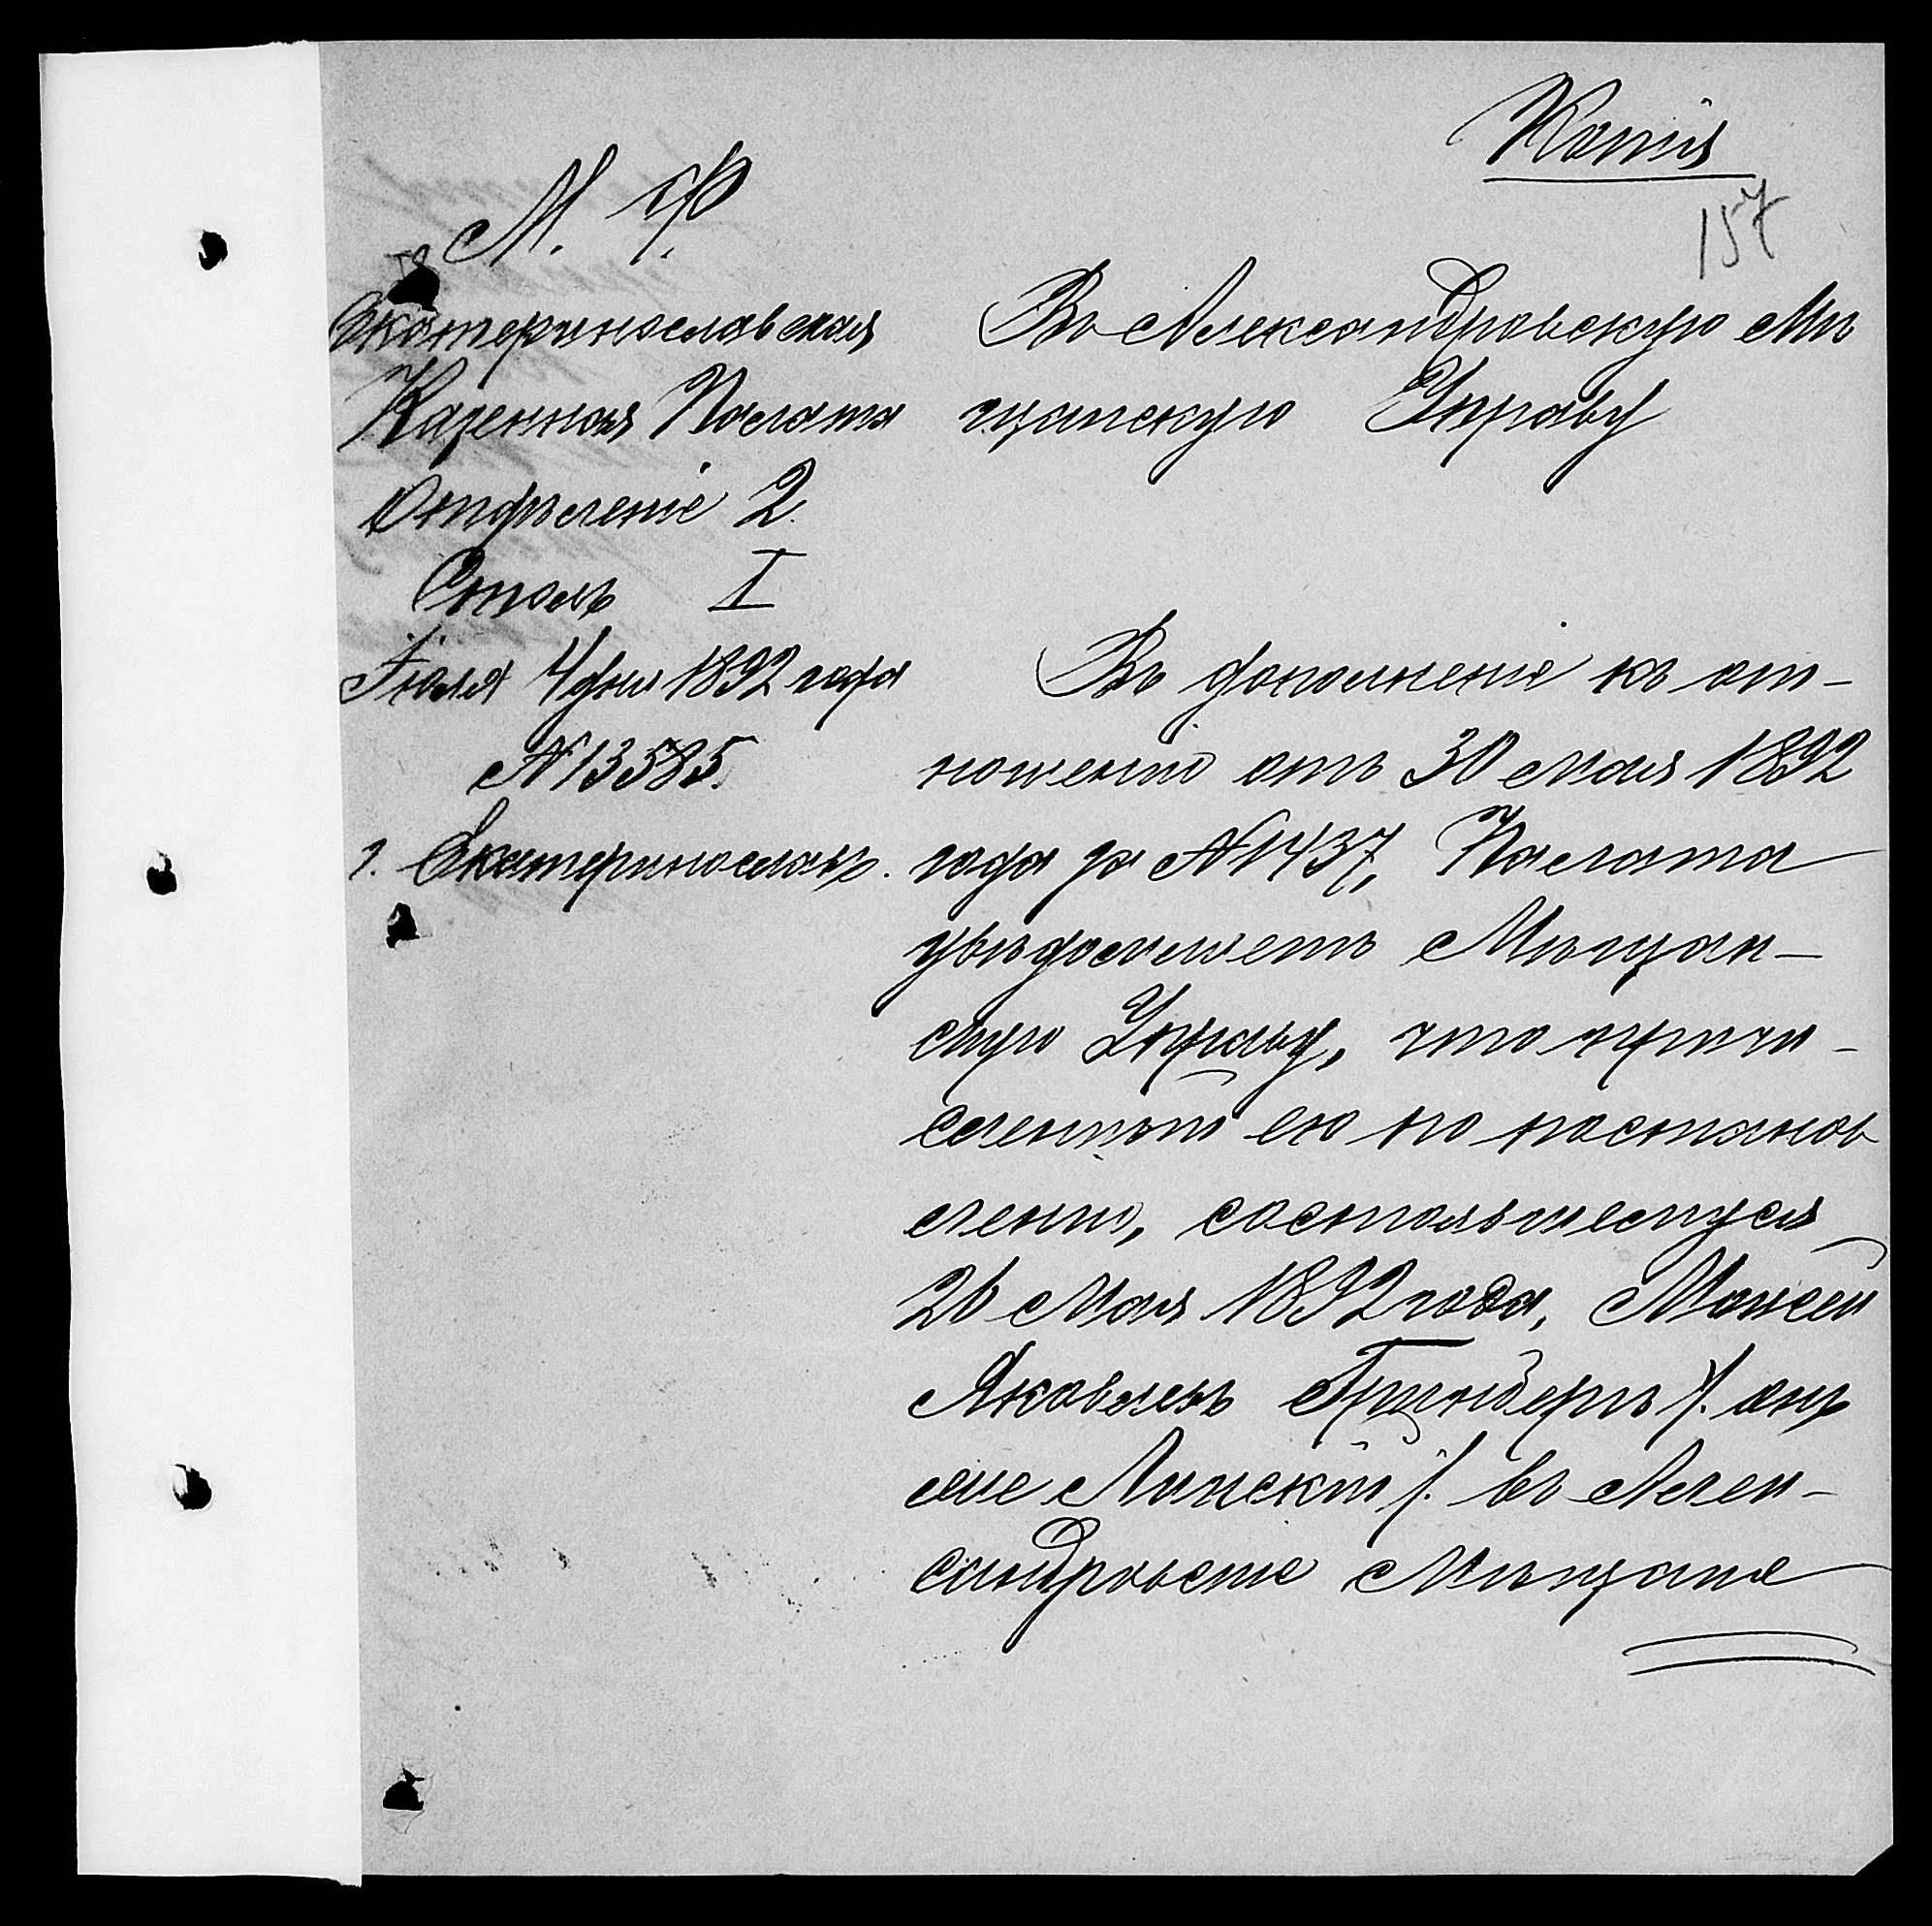 Копія
157
М. Ф.
Екатеринославская
Казенная Палата
Отдѣленіе 2.
Столъ I
Іюля 4 дня 1892 года
№ 13585.
г. Екатеринославъ.
Въ Александровскую Мѣ
щанскую Управу
Въ дополненіе къ от-
ношенію отъ 30 Мая 1892
года за № 1437, Палата
увѣдомляетъ Мѣщан-
скую Управу, что причи-
сленный ею по постанов
ленію, состоявшемуся
26 Мая 1892 года, Моисей
Яковлевъ Гринбергъ /. онъ
же Липскій /. въ Алек-
сандровскіе Мѣщане